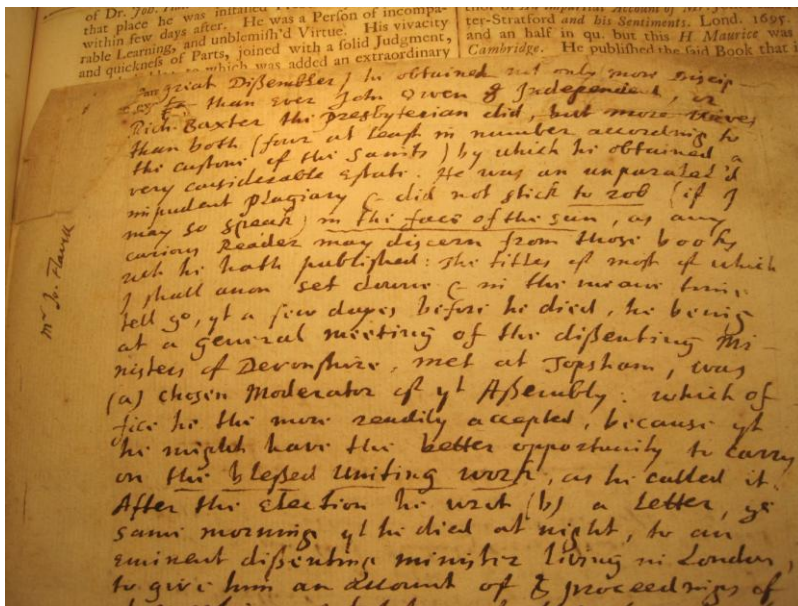 of Dr. Job.
that place he was installed
within few days after. He was a Person of incompa-
rable Learning, and unblemish'd Virtue. His vivacity
and quickness of Parts, joined with a solid Judgment,
to which was added an extraordinary
Impartial Account of Mr.
ter-Stratford and his Sentiments. Lond. 1695.
and an half in qu. but this H. Maurice was
Cambridge. He published the said Book that i
great Dißembler) he obtained not only more Discip-
than ever John Owen ye Independent, or
Rich. Baxter the Presbyterian did, but more
than both (four at least in number according to
the custome of the Saints) by which he obtained a
very considerable Estate. He was an unparalel'd
impudent plagiary & did not stick to rob (if I
may so speak) in the face of the sun, as any
curious Reader may discern from those books
wch he hath published: The titles of most of which
I shall anon set downe & in the meane time
tell yo, yt a few dayes before he died, he being
at a general meeting of the dißenting Mi-
nisters of Devonshire, met at Topsham, was
(a) chosen Moderator of yt Aßembly: which of
fice he the more readily accepted, because yt
he might have the better opportunity to carry
on the bleßed Uniting work, as he called it.
After the election he writ (b) a Letter, ye
same morning yt he died at night, to an
eminent dißenting minister living in London,
to give him an account of ye proceedings of
Mr Jo. Flavell